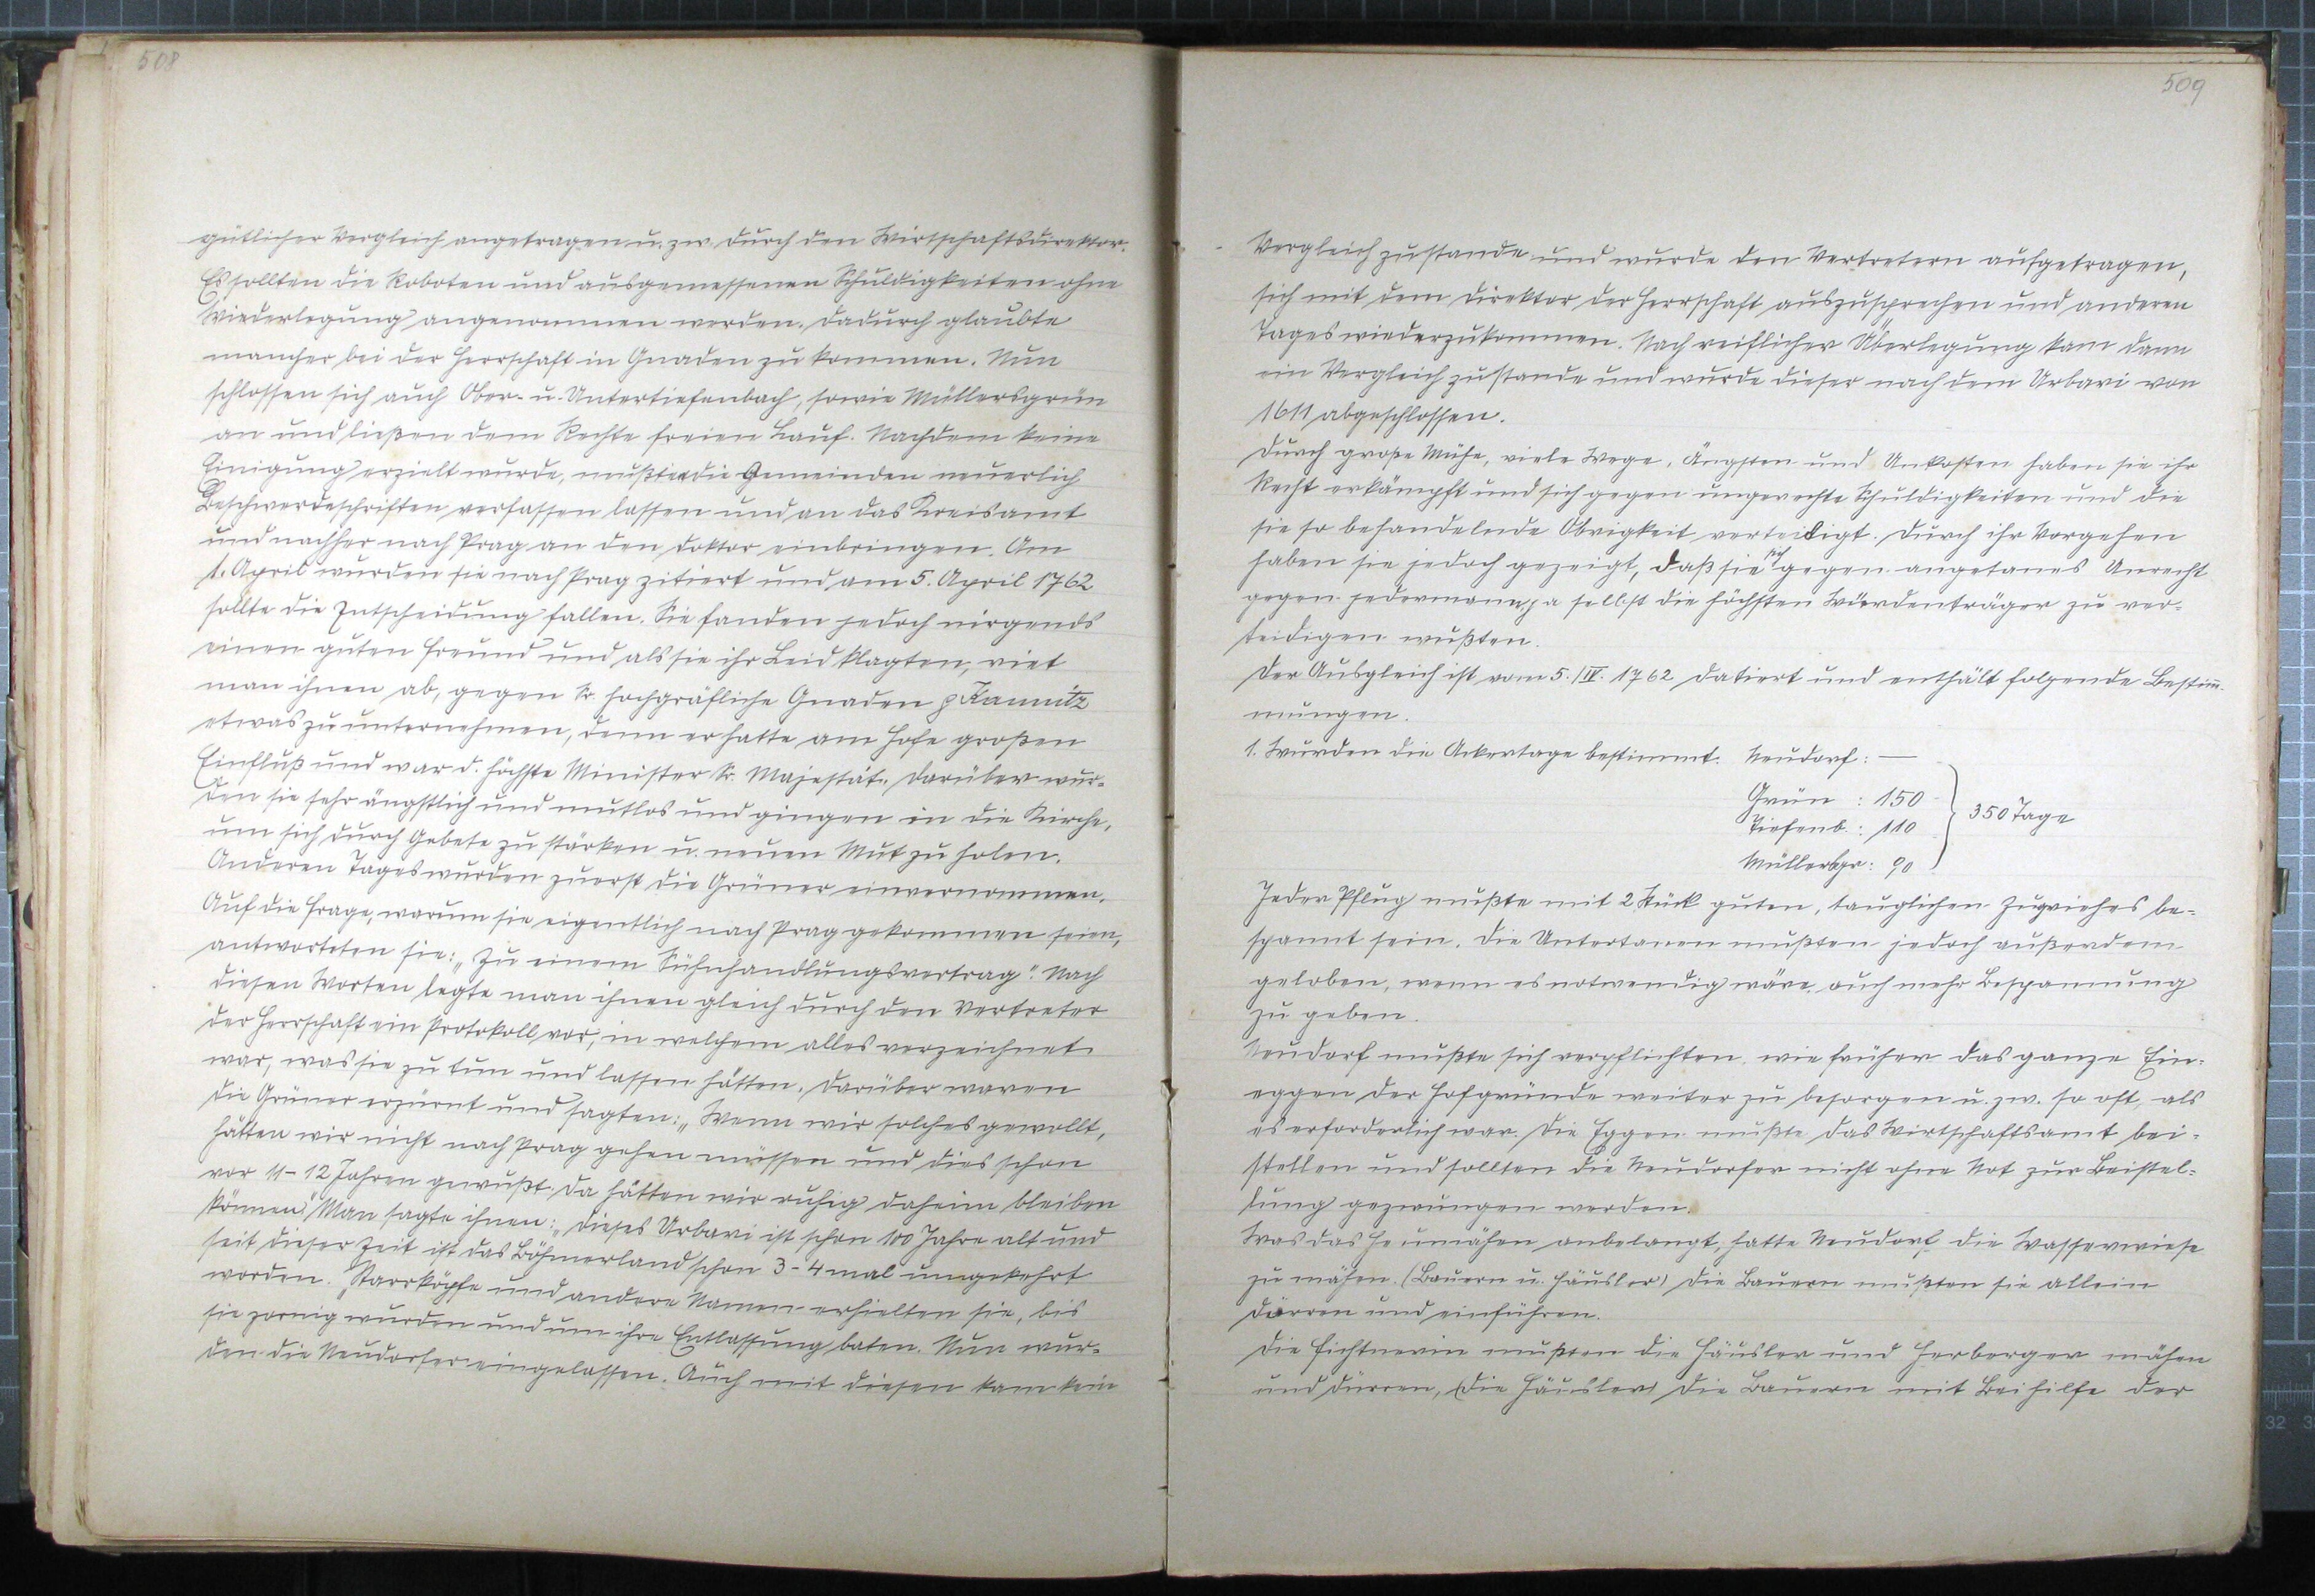 508
gütlicher Vergleich angetragen u. zw. durch den Wirtschaftsdirektor.
Es sollten die Roboten und ausgemessenen Schuldigkeiten ohne
Wiederlegung angenommen werden. Dadurch glaubte
mancher bei der Herrschaft in Gnaden zu kommen. Nun
schlossen sich auch Ober- u. Untertiefenbach, sowie Müllersgrün
an und ließen dem Rechte freien Lauf. Nachdem keine
Einigung erzielt wurde, mußten die Gemeinden neuerlich
Beschwerdeschriften verfassen lassen und an das Kreisamt
und nachher nach Prag an den Doktor einbringen. Am
1. April wurden sie nach Prag zitiert und am 5. April 1762
sollte die Entscheidung fallen. Sie fanden jedoch nirgends
einen guten Freund und als sie ihr Leid klagten, riet
man ihnen ab, gegen Sr. hochgräfliche Gnaden p Kaunitz
etwas zu unternehmen, denn er hatte am Hofe großen
Einfluß und war d. höchste Minister Sr. Majestät. Darüber wur-
den sie sehr ängstlich und mutlos und gingen in die Kirche,
um sich durch Gebete zu stärken u. neuen Mut zu holen.
Anderen Tages wurden zuerst die Grüner einvernommen.
Auf die Frage, warum sie eigentlich nach Prag gekommen seien,
antworteten sie: „Zu einem Sühnhandlungsvertrag". Nach
diesen Worten legte man ihnen gleich durch den Vertreter
der Herrschaft ein Protokoll vor, in welchem alles verzeichnet
war, was sie zu tun und lassen hätten. Darüber waren
die Grüner erzürnt und sagten: „Wenn wir solches gewollt,
hätten wir nicht nach Prag gehen müssen und dies schon
vor 11-12 Jahren gewußt. Da hätten wir ruhig daheim bleiben
können." Man sagte ihnen: „Dieses Urbari ist schon 100 Jahre alt und
seit dieser Zeit ist das Böhmerland schon 3-4 mal umgekehrt
worden." Starrköpfe und andere Namen erhielten sie, bis
sie zornig wurden und um ihre Entlassung baten. Nun wur-
den die Neudorfer eingelassen. Auch mit diesen kam kein
509
Vergleich zustande und wurde den Vertretern aufgetragen,
sich mit dem Direktor der Herrschaft auszusprechen und anderen
Tages wiederzukommen. Nach reiflicher Überlegung kam dann
ein Vergleich zustande und wurde dieser nach dem Urbari von
1611 abgeschlossen.
Durch große Mühe, viele Wege, Ängsten und Unkosten haben sie ihr
Recht erkämpft und sich gegen ungerechte Schuldigkeiten und die
sie so behandelnde Obrigkeit verteidigt. Durch ihr Vorgehen
haben sie jedoch gezeigt, daß sie sich gegen angetanes Unrecht
gegen jedermann, ja selbst die höchsten Würdenträger zu ver-
teidigen wußten.
Der Ausgleich ist vom 5. / IV. 1762 datiert und enthält folgende Bestim̅-
mungen.
1. Wurden die Ackertage bestimmt. Neudorf: —
Grün : 150
Tiefenb. : 110 } 350 Tage
Müllersgr: 90
Jeder Pflug mußte mit 2 Stück guten, tauglichen Zugviehes be-
spannt sein. Die Untertanen mußten jedoch außerdem
geloben, wenn es notwendig wäre, auch mehr Bespannung
zu geben.
Neudorf mußte sich verpflichten, wie früher das ganze Ein-
eggen der Hofgründe weiter zu besorgen u. zw. so oft, als
es erforderlich war. Die Eggen mußte das Wirtschaftsamt bei-
stellen und sollten die Neudorfer nicht ohne Not zur Beistel-
lung gezwungen werden.
Was das Heumähen anbelangt, hatte Neudorf die Wasserwiese
zu mähen. (Bauern u. Häusler) Die Bauern mußten sie allein
dörren und einführen.
Die Fichtnerin mußten die Häusler und Herberger mähen
und dürren, (die Häusler) die Bauern mit Beihilfe der